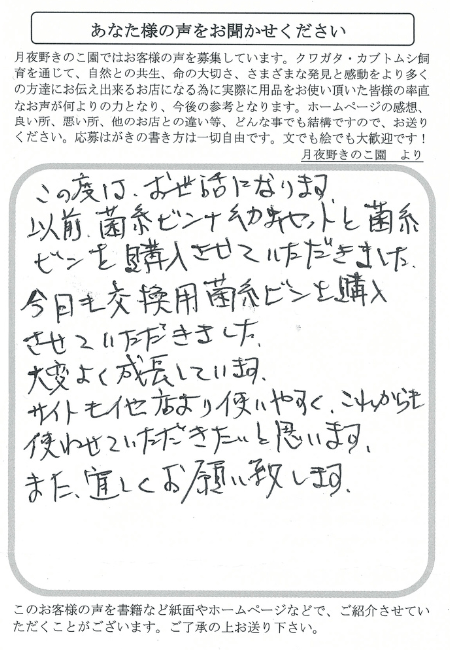 あなた様の声をお聞かせください
月夜野きのこ園ではお客様の声を募集しています。クワガタ・カブトムシ飼
育を通じて、自然との共生、命の大切さ、さまざまな発見と感動をより多く
の方達にお伝え出来るお店になる為に実際に用品をお使い頂いた皆様の率直
なお声が何よりの力となり、今後の参考となります。ホームページの感想、
良い所、悪い所、他のお店との違い等、どんな事でも結構ですので、お送り
ください。応募はがきの書き方は一切自由です。文でも絵でも大歓迎です！
月夜野きのこ園　より
この度は、お世話になります。
以前、菌糸ビンナ幼虫セットと菌糸
ビンを購入させていただきました。
今回も交換用菌糸ビンを購入
させていただきました。
大変よく成長しています。
サイトも他店より使いやすく、これからも
使わせていただきたいと思います。
また、宜しくお願い致します。
このお客様の声を書籍など紙面やホームページなどで、ご紹介させてい
ただくことがございます。ご了承の上お送り下さい。